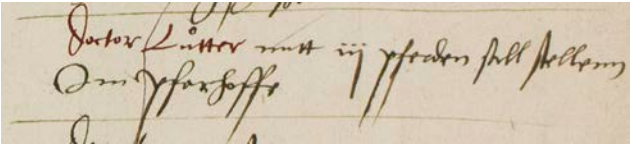 Doctor Lůtter mitt iij pferden sall stellenn
Im pfarhoffe